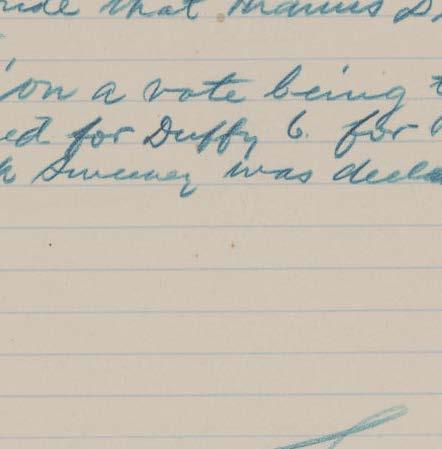 that
on a vote being
ed for Duffy 6. for
Sweeney was decla